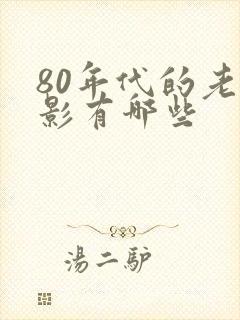 80年代的老
影有哪些
湯二驴